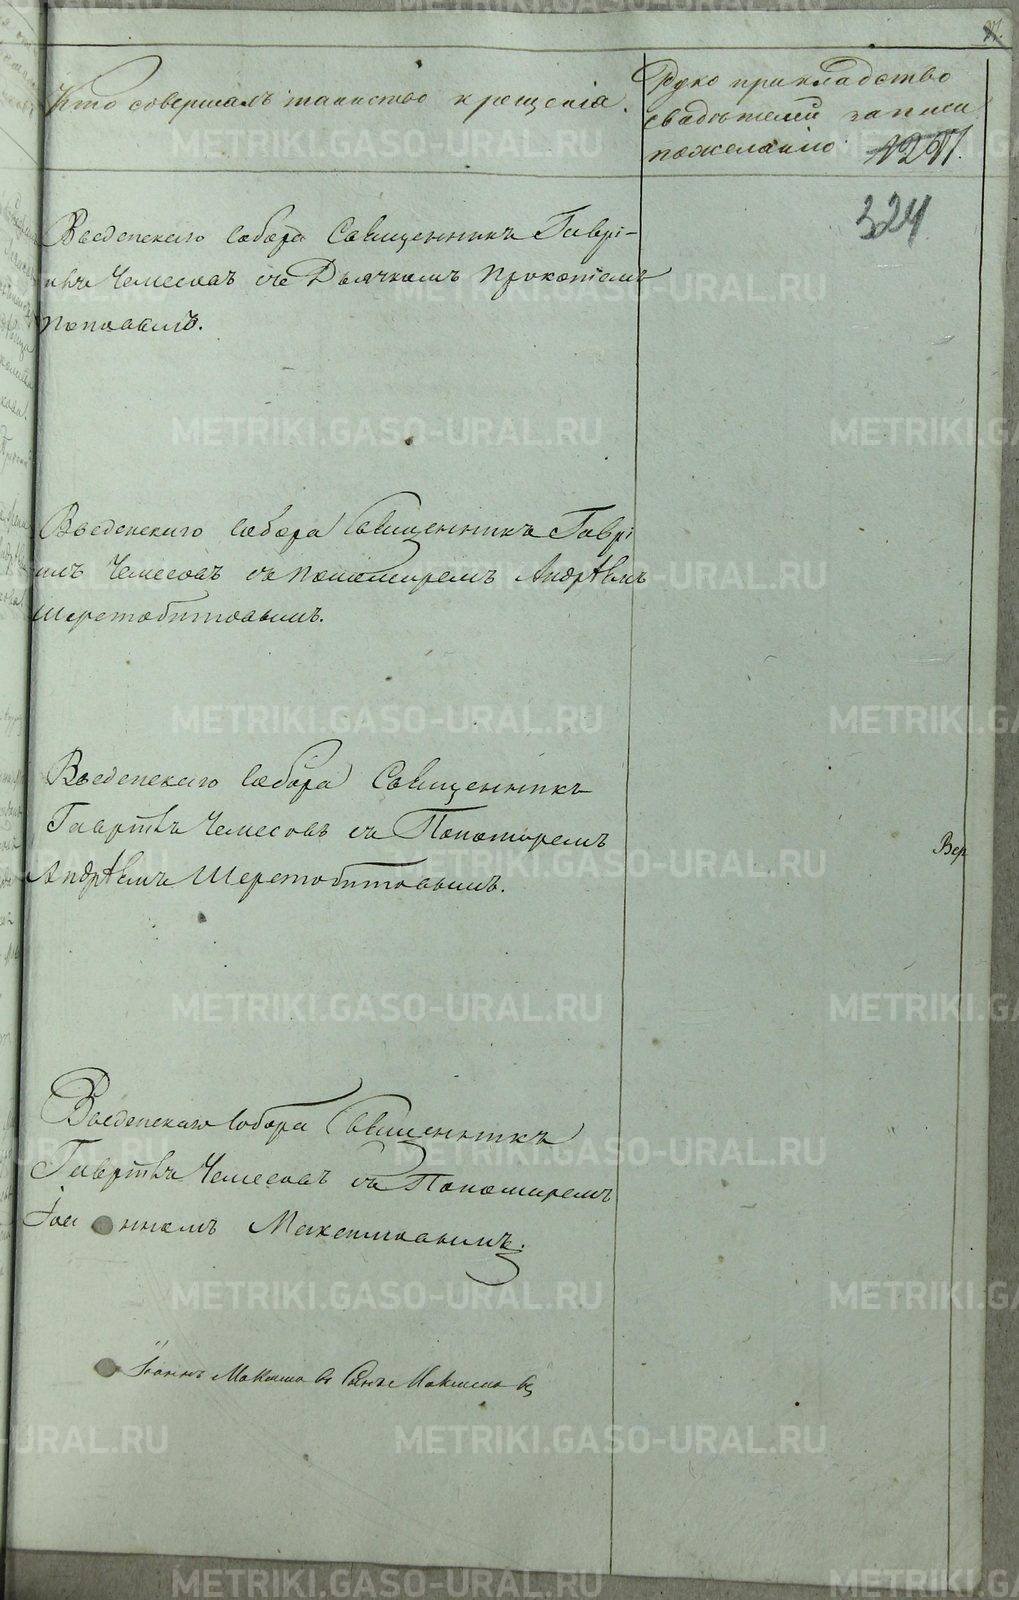 Кто совершалъ таинство крещенія.
Рукоприкладство
свидѣтелей записи
по желанію
324
Введенскаго Собора Священникъ Гаврі-
илъ Чемесовъ съ Дьячкомъ Прокопіемъ
Поповымъ.
Введенскаго Собора Священникъ Гаврі
илъ Чемесовъ съ Пономаремъ Андрѣемъ
Шеретобитовымъ.
Введенскаго Собора Священникъ
Гавріилъ Чемесовъ съ Пономаремъ
Андрѣемъ Шеретобитовымъ.
Вер
Введенскаго Собора Священникъ
Гавріилъ Чемесовъ съ Пономаремъ
Іоанномъ Максимовымъ.
Іоаннъ Максимовъ
METRIKI.GASO-URAL.RU